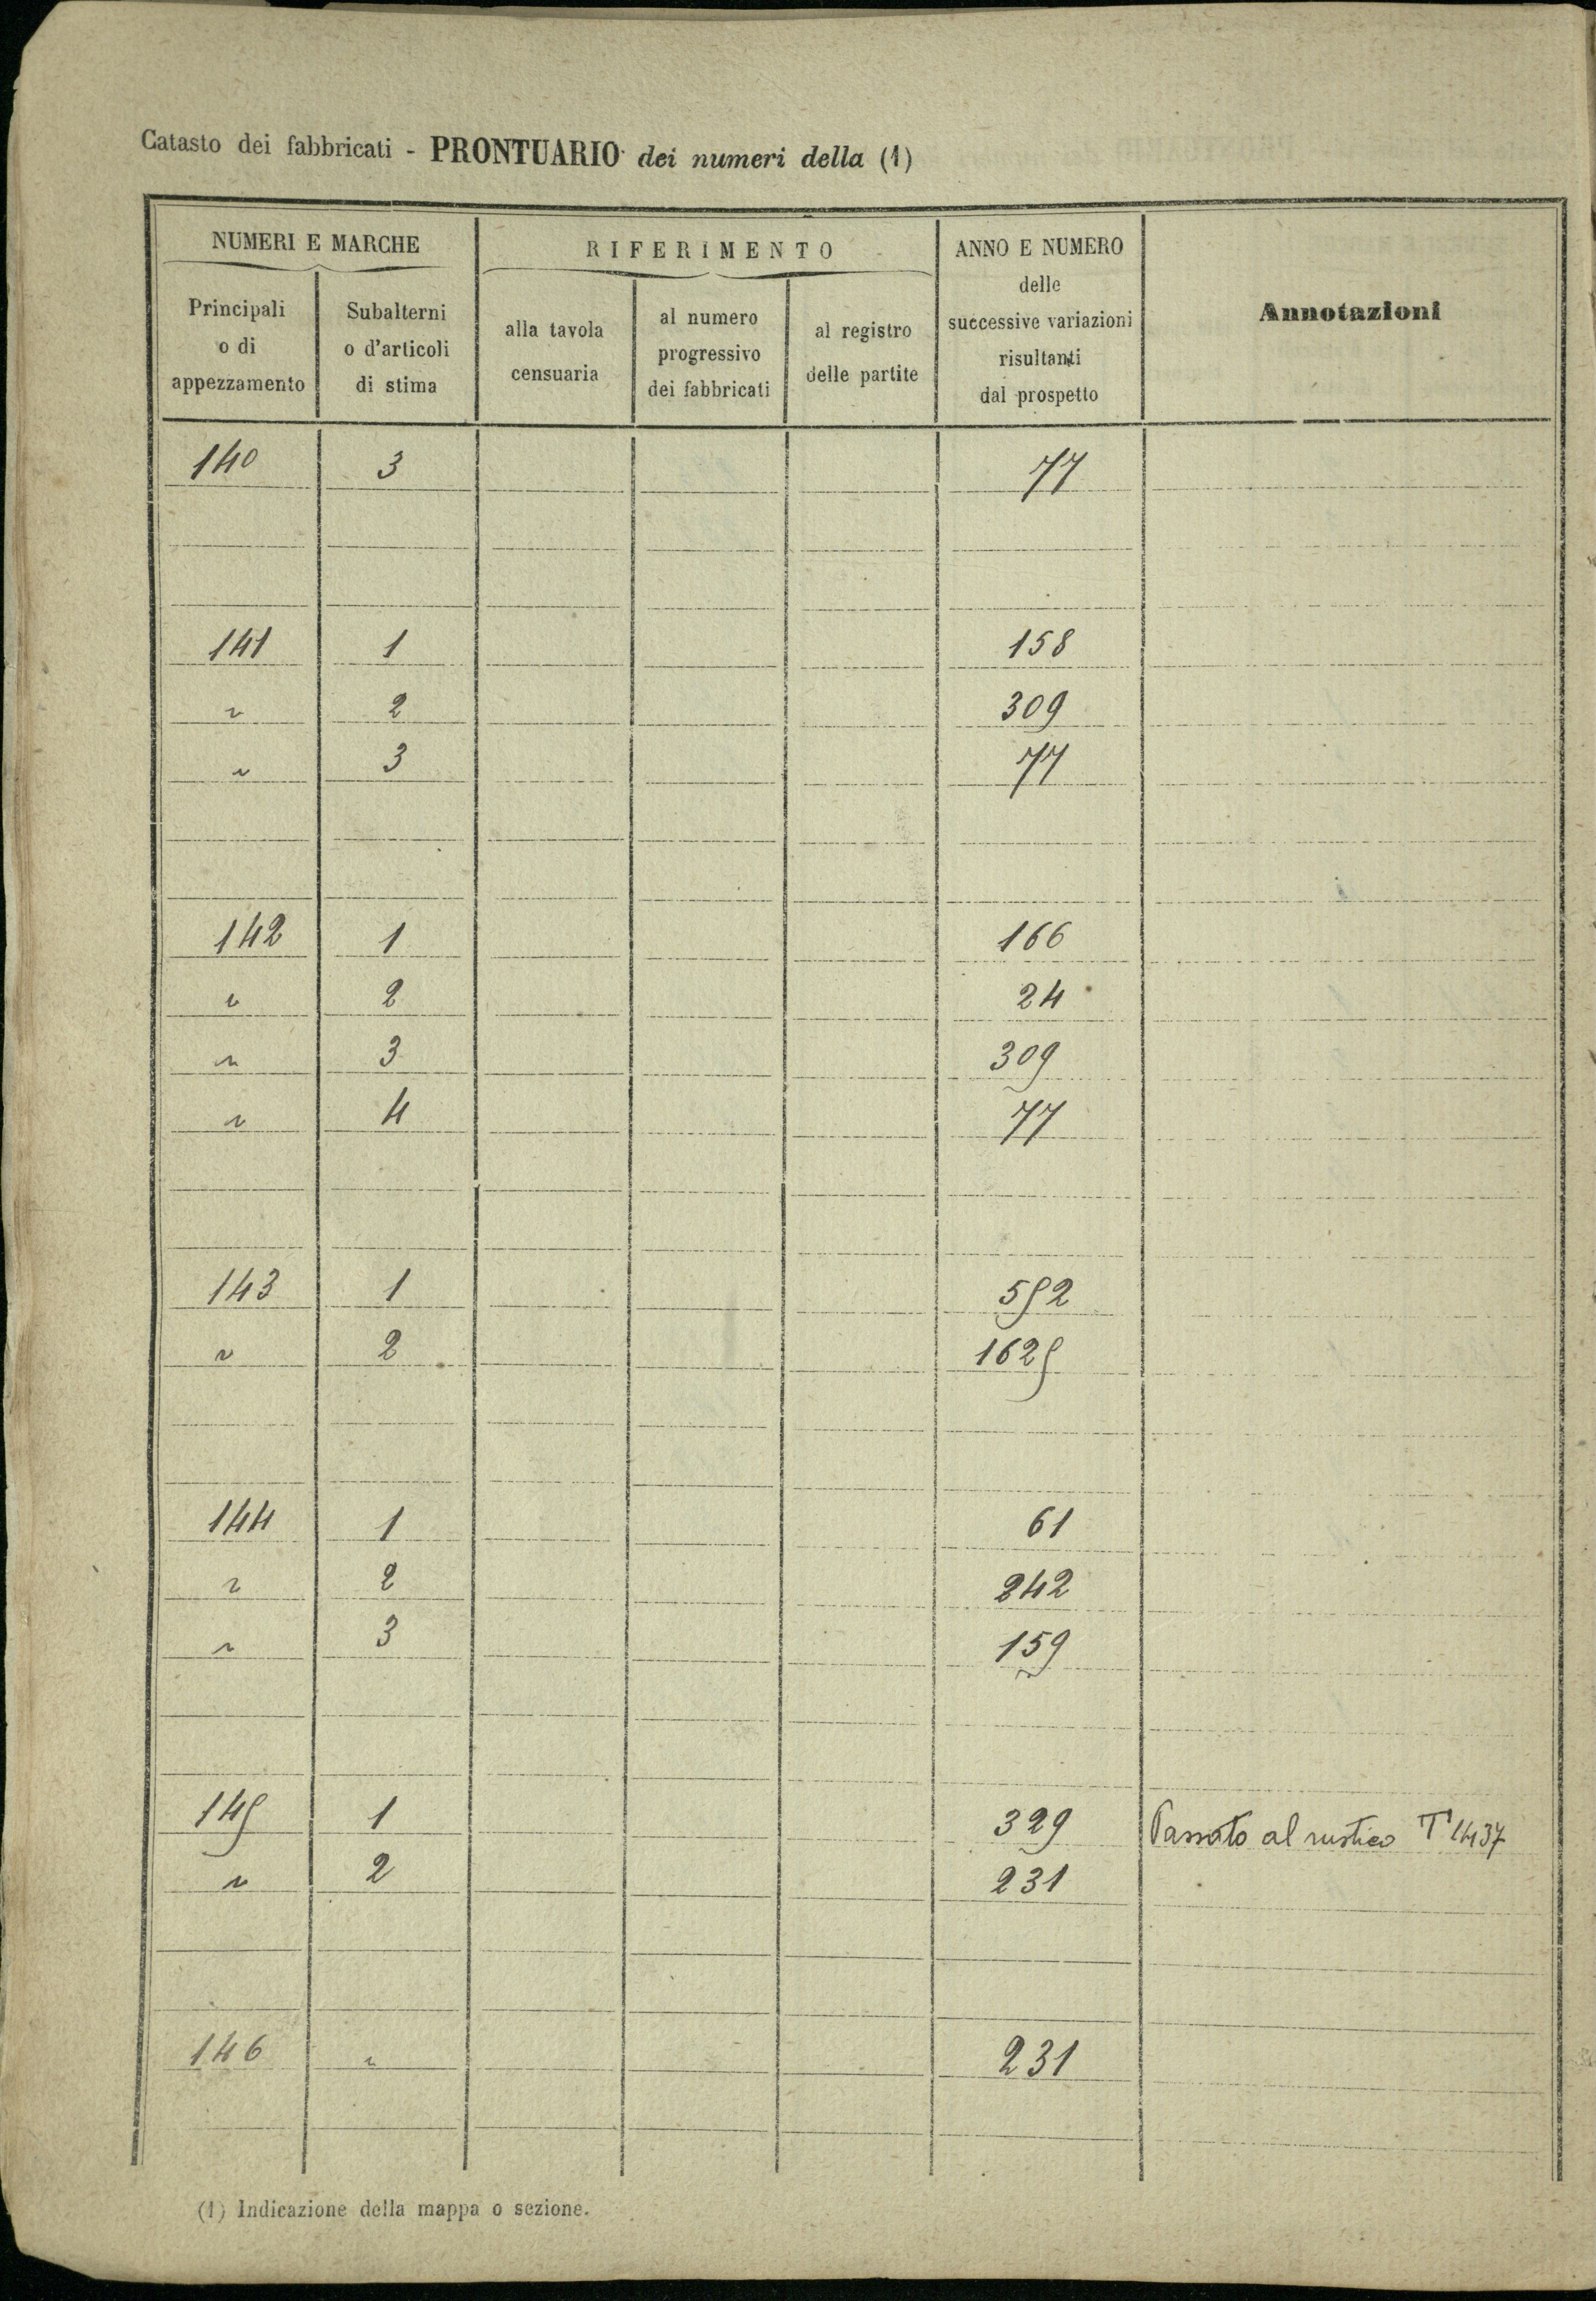 Catasto dei fabbricati - PRONTUARIO dei numeri della (1)
NUMERI E MARCHE
RIFERIMENTO
ANNO E NUMERO
delle
successive variazioni
risultanti
dal prospetto
Annotazioni
Principali
o di
appezzamento
Subalterni
o d'articoli
di stima
alla tavola
censuaria
al numero
progressivo
dei fabbricati
al registro
delle partite
140 3 77
141 1 158
" 2 309
" 3 77
142 1 166
" 2 24
" 3 309
" 4 77
143 1 552
" 2 1625
144 1 61
" 2 242
" 3 159
145 1 329 Passato al rustico T 1437
" 2 231
146 " 231
(1) Indicazione della mappa o sezione.